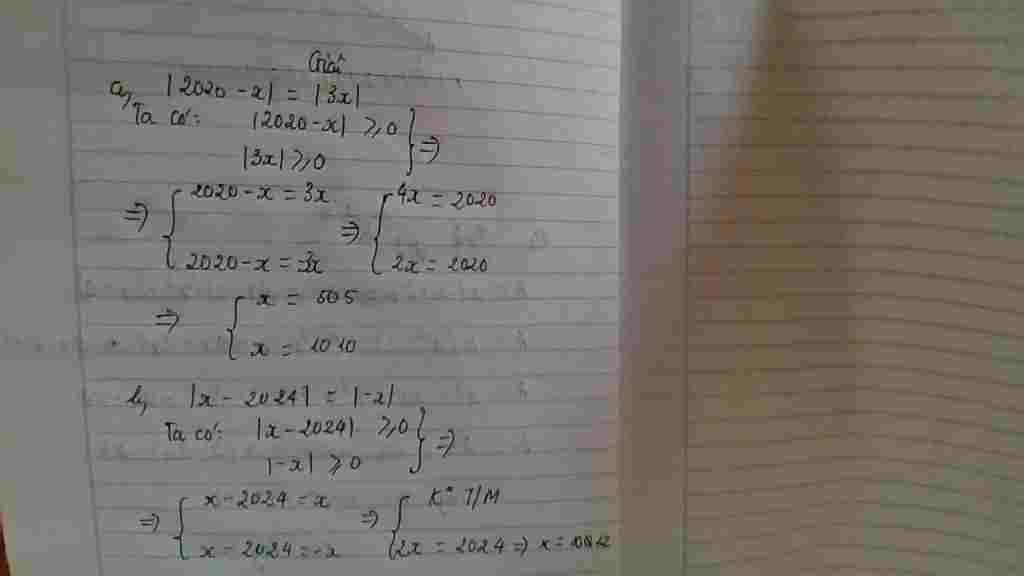 Giải
a, |2020 - x| = |3x|
Ta có: |2020 - x| ⩾ 0 } ⇒
|3x| ⩾ 0
⇒ { 2020 - x = 3x ⇒ { 4x = 2020
2020 - x = 3x 2x = 2020
⇒ { x = 505
x = 1010
b, |x - 2024| = |-x|
Ta có: |x - 2024| ⩾ 0 } ⇒
|-x| ⩾ 0
⇒ { x - 2024 = x ⇒ { K° T/M
x - 2024 = -x 2x = 2024 ⇒ x = 1012